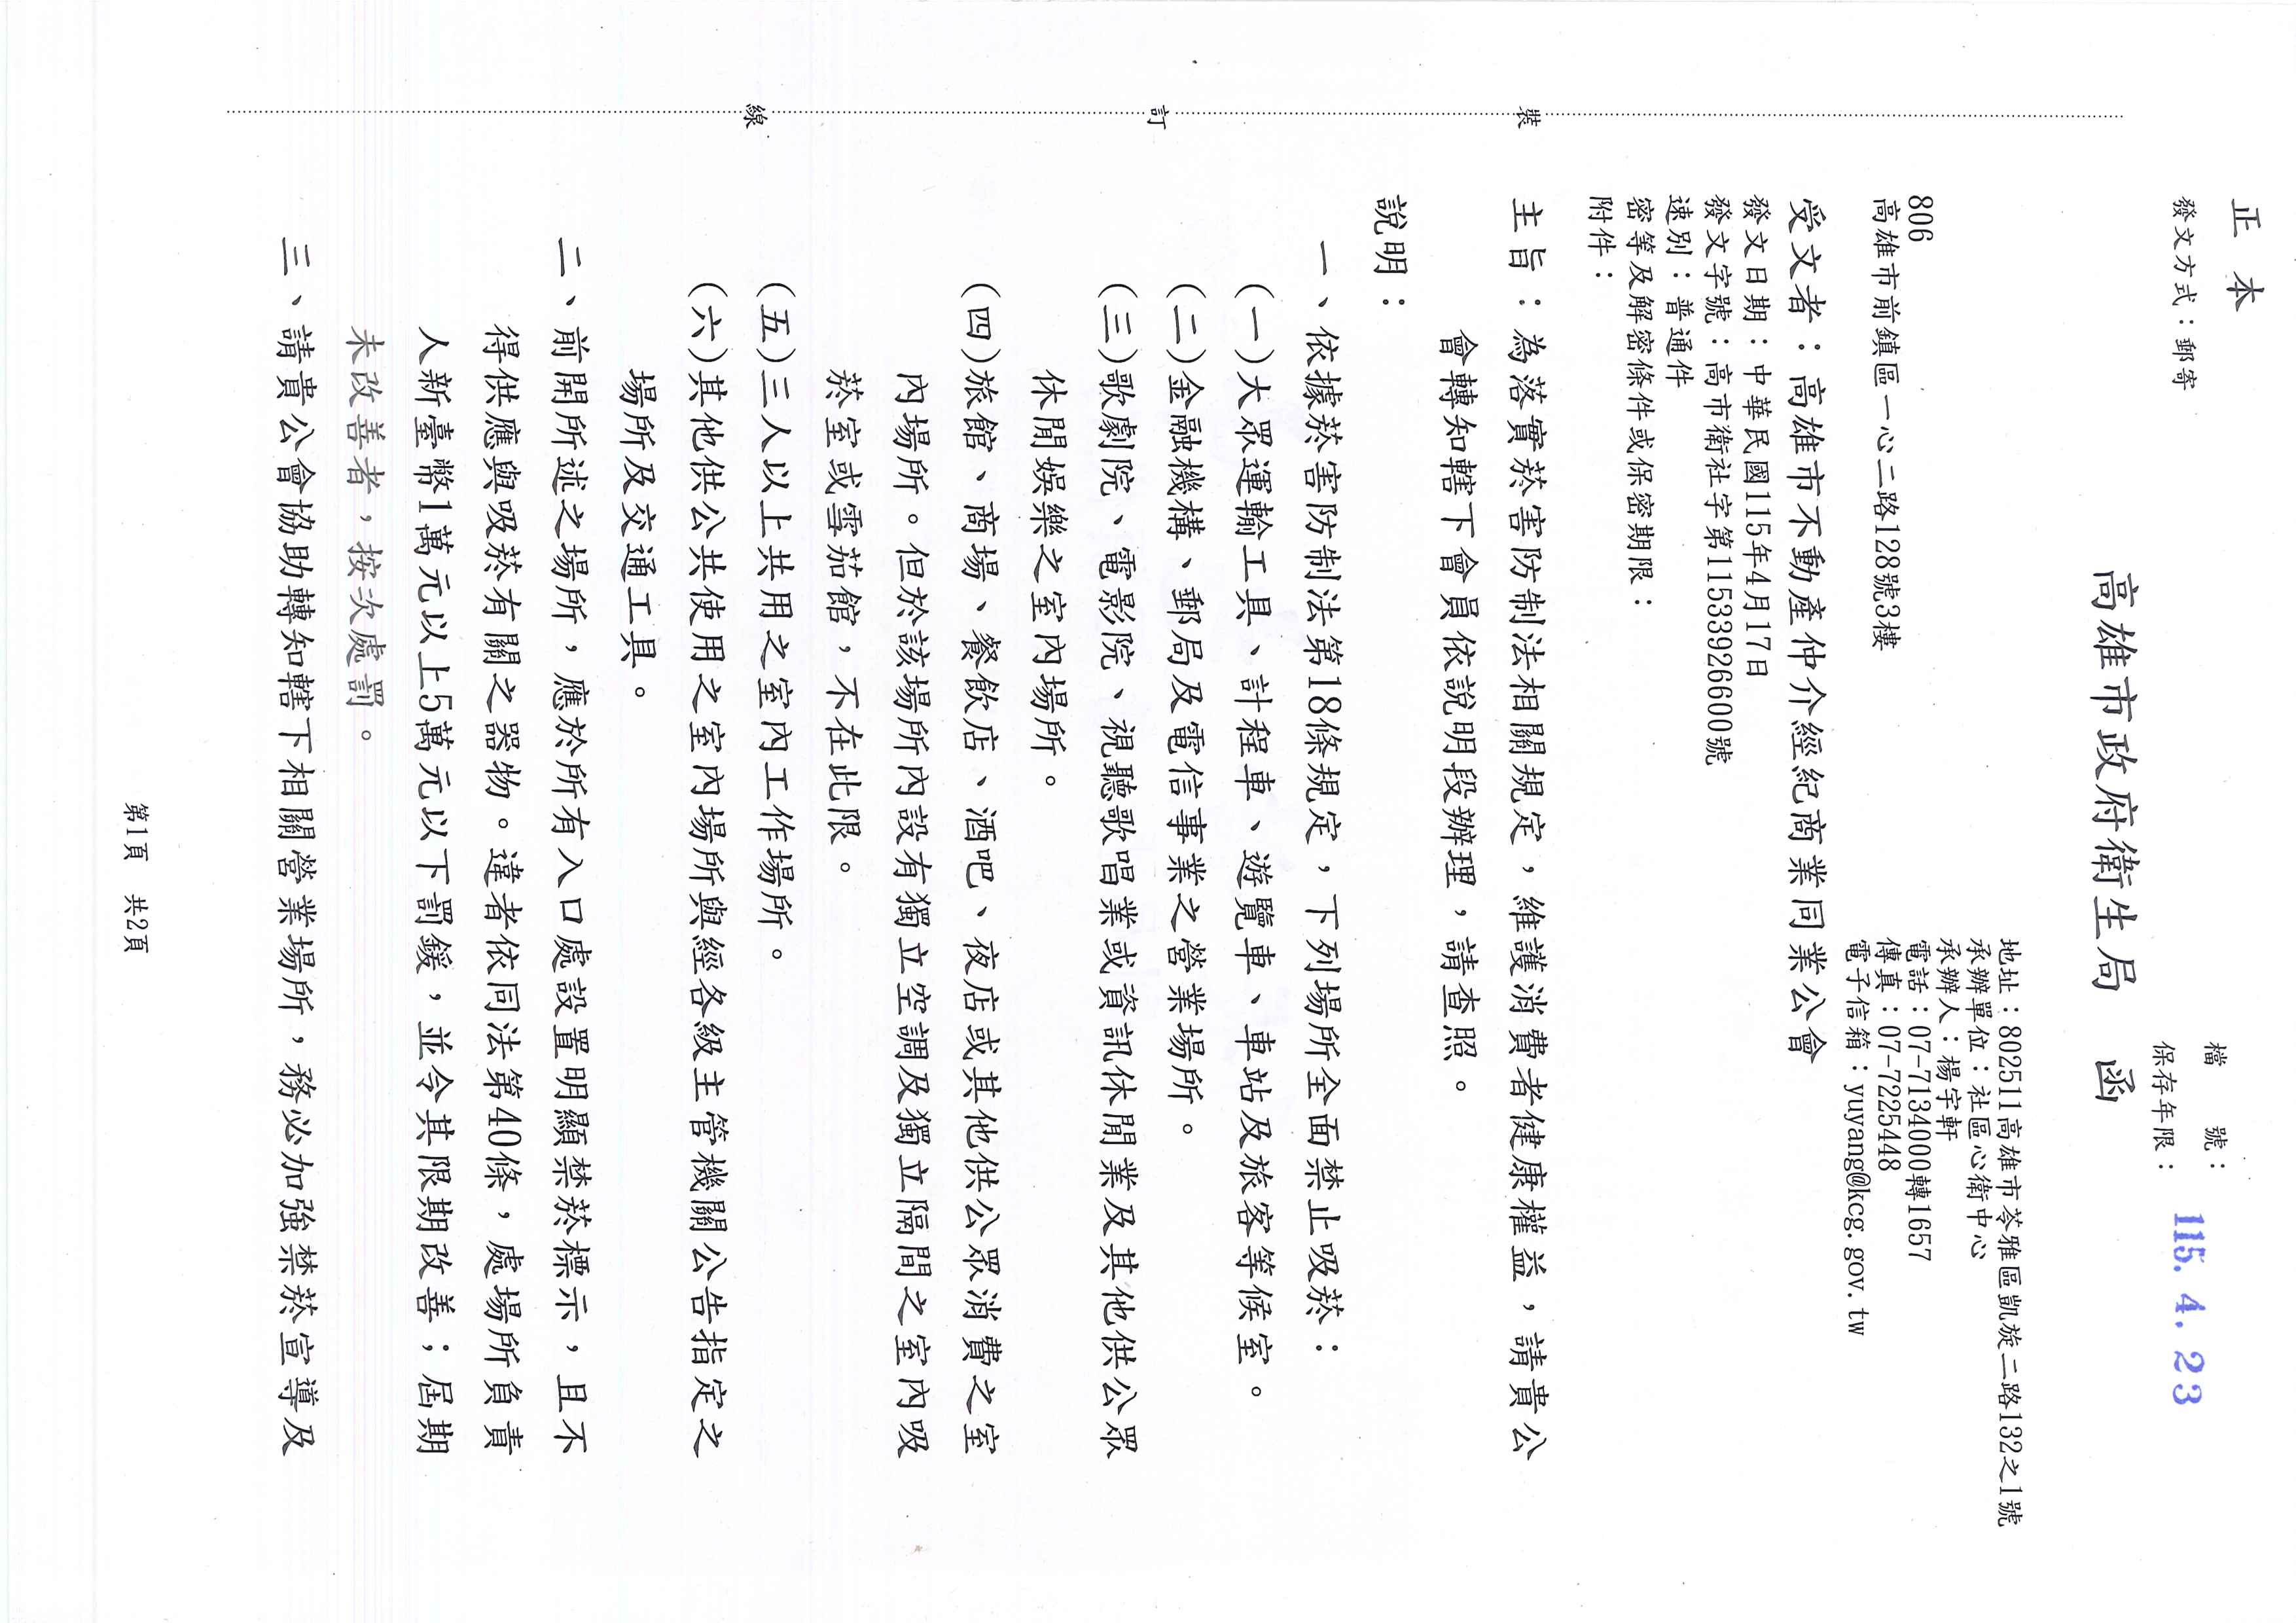 正本
發文方式：郵寄
檔　　號：
保存年限：
115. 4. 23
高雄市政府衛生局　函
地址：802511高雄市苓雅區凱旋二路132之1號
承辦單位：社區心衛中心
承辦人：楊宇軒
電話：07-7134000轉1657
傳真：07-7225448
電子信箱：yuyang@kcg.gov.tw
806
高雄市前鎮區一心二路128號3樓
受文者：高雄市不動產仲介經紀商業同業公會
發文日期：中華民國115年4月17日
發文字號：高市衛社字第11533926600號
速別：普通件
密等及解密條件或保密期限：
附件：
主旨：為落實菸害防制法相關規定，維護消費者健康權益，請貴公
會轉知轄下會員依說明段辦理，請查照。
說明：
一、依據菸害防制法第18條規定，下列場所全面禁止吸菸：
(一)大眾運輸工具、計程車、遊覽車、車站及旅客等候室。
(二)金融機構、郵局及電信事業之營業場所。
(三)歌劇院、電影院、視聽歌唱業或資訊休閒業及其他供公眾
休閒娛樂之室內場所。
(四)旅館、商場、餐飲店、酒吧、夜店或其他供公眾消費之室
內場所。但於該場所內設有獨立空調及獨立隔間之室內吸
菸室或雪茄館，不在此限。
(五)三人以上共用之室內工作場所。
(六)其他供公共使用之室內場所與經各級主管機關公告指定之
場所及交通工具。
二、前開所述之場所，應於所有入口處設置明顯禁菸標示，且不
得供應與吸菸有關之器物。違者依同法第40條，處場所負責
人新臺幣1萬元以上5萬元以下罰鍰，並令其限期改善；屆期
未改善者，按次處罰。
三、請貴公會協助轉知轄下相關營業場所，務必加強禁菸宣導及
裝
訂
線
第1頁　共2頁